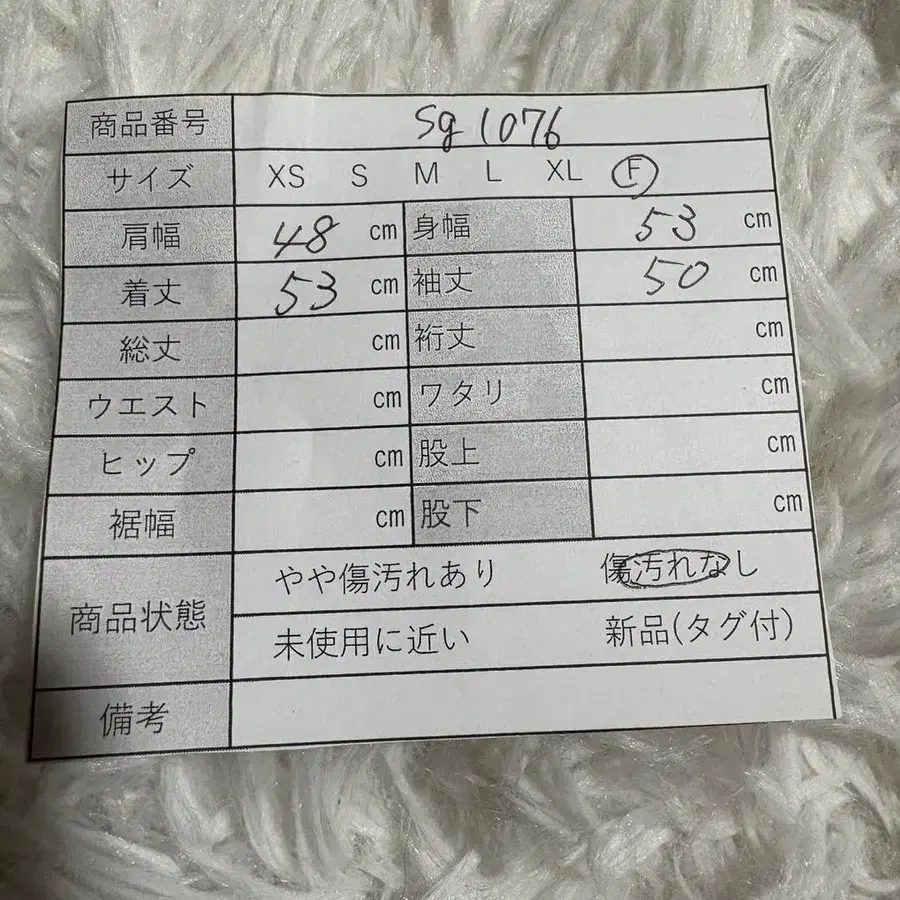 商品番号 Sg1076
サイズ XS S M L XL F
肩幅 48 cm 身幅 53 cm
着丈 53 cm 袖丈 50 cm
総丈 cm 裄丈 cm
ウエスト cm ワタリ cm
ヒップ cm 股上 cm
裾幅 cm 股下 cm
商品状態 やや傷汚れあり 傷汚れなし
未使用に近い 新品(タグ付)
備考